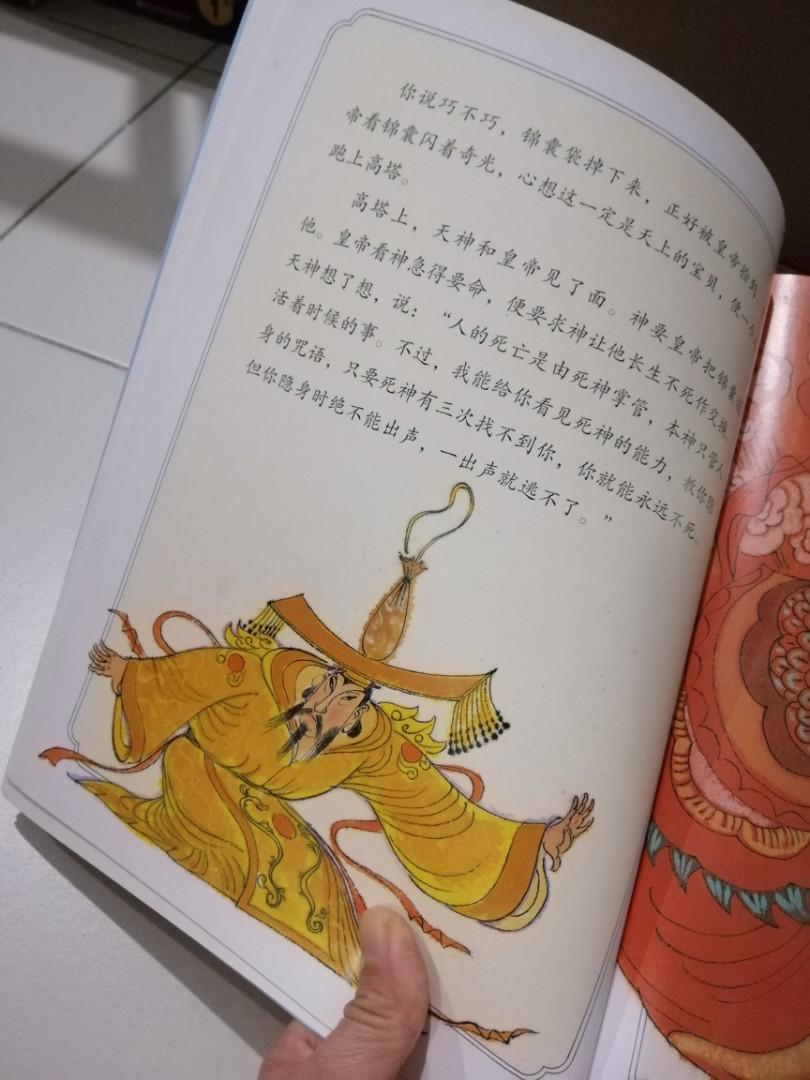 你说巧不巧，锦囊袋掉下来，正好被皇帝捡到
帝看锦囊闪着奇光，心想这一定是天上的宝贝，便一个
跑上高塔。
高塔上，天神和皇帝见了面。神要皇帝把锦囊还
他。皇帝看神急得要命，便要求神让他长生不死作交换
天神想了想，说：“人的死亡是由死神掌管，本神只管人
活着时候的事。不过，我能给你看见死神的能力，教你隐
身的咒语，只要死神有三次找不到你，你就能永远不死。
但你隐身时绝不能出声，一出声就逃不了。”